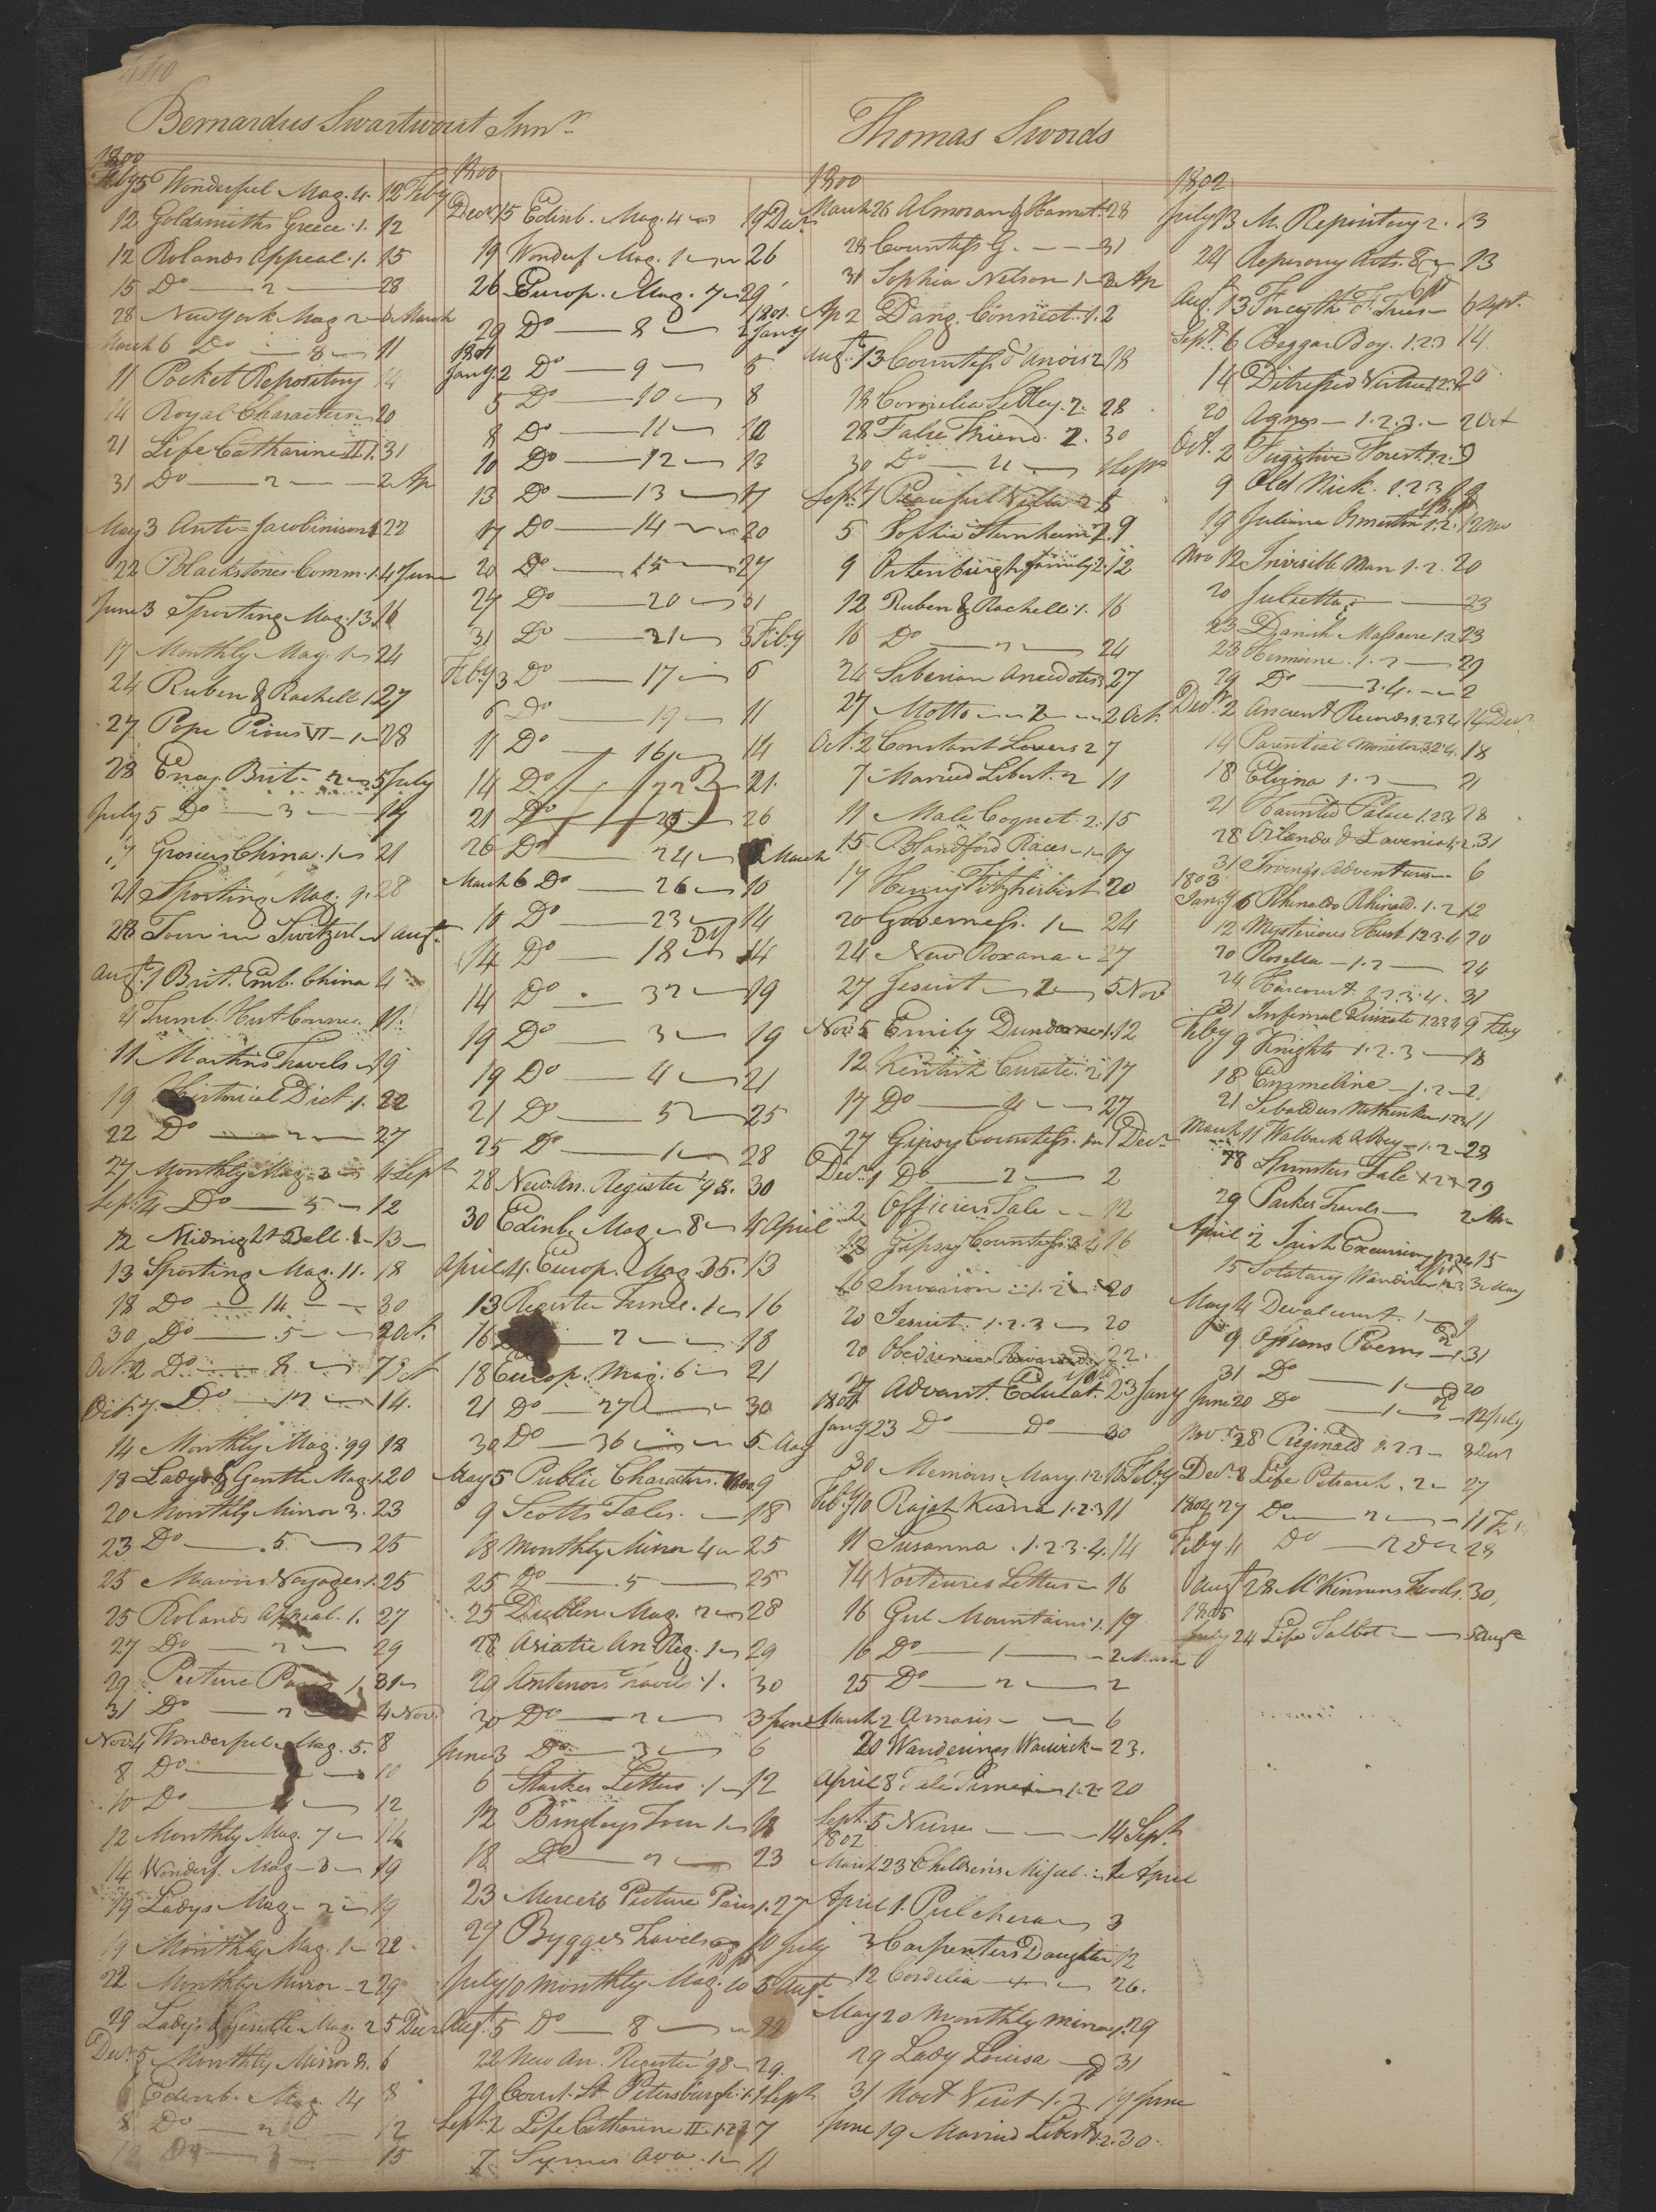 440
Bernardus Swartwout Junr
1800
Feby 5 Wonderful Mag. 4. 12 Feby
12 Goldsmiths Greece. 1. 12
12 Rolands Appeal. 1. 15
15 Do — 2 — 28
28 New York Mag 2 — 6 March
March 6 Do — 8 — 11
11 Pocket Repository 14
14 Royal Characters 20
21 Life Catharine II 1. 31
31 Do — 2 — 2 Ap
May 3 Anti=Jacobinism 1 22
22 Blackstones Comm. 1. 4 June
June 3 Sporting Mag. 13. 16
17 Monthly Mag. 1 — 24
24 Ruben & Rachell 1. 27
27 Pope Pious VI — 1 — 28
28 Ency. Brit. — 2 — 5 July
July 5 Do — 3 — 17
17 Grosiers China. 1 — 21
21 Sporting Mag. 9. 28
28 Tour in Switzerl — 1 Augt.
Augt. 1 Brit. Emb. China 4
4 Trumb. Hist Connec. 11.
11 Martins Travels — 19
19 Historical Dict. 1. 22
22 Do — 2 — 27
27 Monthly Mag. 3 — 4 Sept
Sept. 4 Do — 5 — 12
12 Midnight Bell. 1 — 13
13 Sporting Mag. 11. 18
18 Do — 14 — 30
30 Do — 5 — 2 Oct.
Oct. 2 Do — 8 — 7 Oct
Oct. 7. Do — 12 — 14.
14 Monthly Mag. 99 18
18 Ladys & Gentle Mag. 1. 20
20 Monthly Mirror 3. 23
23 Do — 5. — 25
25 Mavors Voyages 1. 25
25 Rolands Appeal. 1. 27
27 Do — 2 — 29
29 Picture Paris 1. 31
31 Do — 2 — 4 Nov.
Nov. 4 Wonderful Mag. 5. 8
8 Do — 10
10 Do — 4 — 12
12 Monthly Mag. 7 — 14
14 Wonderf. Mag — 3 — 19
19 Ladys Mag — 2 — 19
19 Monthly Mag. 1 — 22
22 Monthly Mirror — 2 29
29 Ladys & Gentle Mag. 2 5 Decr
Decr. 5 Monthly Mirror 8. 6
6 Edinb. Mag. 14 8
8 Do — 2 — 12
12 Do — 3 — 15
1800
Decr. 15 Edinb. Mag. 4 — 19 Decr
19 Wonderf Mag. 1 — 26
26 Europ. Mag. 7 — 29
29 Do — 8 — 1801. 2 Jany
1801
Jany. 2 Do — 9 — 5
5 Do — 10 — 8
8 Do — 11 — 10
10 Do — 12 — 13
13 Do — 13 — 17
17 Do — 14 — 20
20 Do — 15 — 27
27 Do — 20 — 31
31 Do — 21 — 3 Feby
Feby 3 Do — 17 — 6
6 Do — 19 — 11
11 Do — 16 — 14
14 Do — 22 — 21.
21 Do — 25 — 26
26 Do — 24 — 6 March
March 6 Do — 26 — 10
10 Do — 23 — 14
14 Do — 18 — 14
14 Do — 32 — 19
19 Do — 3 — 19
19 Do — 4 — 21
21 Do — 5 — 25
25 Do — 1 — 28
28 New An. Register 98. 30
30 Edinb. Mag — 8 — 4 April
April 4. Europ. Mag 35. 13
13 Register Times. 1 — 16
16 — 2 — 18
18 Europ. Mag. 6 — 21
21 Do — 27 — 30
30 Do — 36 — 5 May
May 5 Public Characters. 9
9 Scotts Tales. — 18
18 Monthly Mirror 4 — 25
25 Do — 5 — 25
25 Dublin Mag. 2 — 28
28 Asiatic An Reg. 1 — 29
29 Antenors Travels. 1. 30
30 Do — 2 — 3 June
June 3 Do — 3 — 6
6 Starkes Letters. 1 — 12
12 Bingleys Tour 1 — 18
18 Do — 2 — 23
23 Merciers Picture Paris 1. 27
27 Bygges Travels 10 July
July 10 Monthly Mag. 10 5 Augt.
Augt. 5 Do — 8 — 22
22 New An. Register 98 — 29.
29 Court. St Petersburgh. 1. 1 Sept
Sept. 2 Life Catharine II. 1.2.3 7
7 Symes Ava. 1 — 11
Thomas Swords
1800
March 26 Almoran & Hamet. 28
28 Countess G. — 31
31 Sophia Nelson 1 — 2 Ap
Ap 2 Dang. Connect. 1. 2
Augt. 13 Countess d'Anois 2 18
18 Cornelia Sedley. 2. 28
28 False Friend. 2. 30
30 Do — 4 — 1 Sept
Sept. 1 Peaceful Villa 2 5
5 Sophia Sternheim 2. 9
9 Ortenburgh family 2. 12
12 Ruben & Rachell. 1. 16
16 Do — 2 — 24
24 Siberian Anecdotes 3 27
27 Motto — 2 — 2 Oct.
Oct. 2 Constant Lovers 2 7
7 Married Libert. 2 11
11 Male Coquet 2. 15
15 Blandford Races — 1 — 17
17 Henry Fitzherbert 20
20 Governess. 1 — 24
24 New Roxana — 27
27 Jesuit — 2 — 5 Nov
Nov. 5 Emily Dundorne 1. 12
12 Kentish Curate. 2. 17
17 Do — 4 — 27
27 Gipsy Countess. 1 — 1 Decr
Decr. 1 Do — 2 — 2
2 Officers Tale — 12
12 Gipsey Countess. 3.4 16
16 Invasion — 1.2 — 20
20 Jesuit. 1.2.3 — 20
20 Obedience Rewarded 22.
27 Advant. Educat. 23 Jany
1801
Jany 23 Do — Do — 30
30 Memoirs Mary. 1.2. 10 Feby
Feby 10 Rajah Kisna 1.2.3 11
11 Susanna. 1.2.3.4. 14
14 Lettus — 16
16 Gul Mountains 1. 19
16 Do — 1 — 2 March
25 Do — 2 — 2
March 2 Amasis — 6
20 Wanderings Warwick — 23.
April 8 Tale Times 1.2. 20
Sept. 5 Nurse — 14 Sept.
1802
March 23 Childrens Misçel. — 1 April
April 1. Pulchera — 3
3 Carpenters Daughter 12
12 Cordelia — 26.
May 20 Monthly Mirror 1. 29
29 Lady Louisa — 31
31 Noct Visit 1.2 19 June
June 19 Married Libert. 1.2. 30.
1802
July 13 M. Repository 2. 13
24 Repertory Arts. 8 — 13
Aug. 13 Forsyth F. Trees — 6 Sept.
Sept. 6 Beggar Boy. 1.2.3 14
14 Distressed Virtue 1.2.3. 20
20 Agnes — 1.2.3. — 2 Oct
Oct. 2 Fugitive Forest. 1.2. 9
9 Old Nick. 1.2.3 19
19 Juliana Ormeston 1.2. 12 Nov
Nov 12 Invisible Man 1.2. 20
20 Julietta — 23
23 Danish Massacre 1.2 23
23 Hermine. 1.2 — 29
29 Do — 3.4. — 2
Decr. 2 Ancient Records 1.2.3.4 14 Decr.
14 Parential Monitor 3.2.4. 18
18 Elvina 1.2 — 21
21 Haunted Palace 1.2.3 28
28 Orlando & Lavenia 1.2. 31
31 Irvings Adventures — 6
1803
Jany 6 Rhinaldo Rhinald. 1.2 12
12 Mysterious Husb 1.2.3.4 20
20 Rosella — 1.2 — 24
24 Harcourt 1.2.3.4. 31
31 Infernal Quixote 1.2.3.4 9 Feby
Feby 9 Knights 1.2.3 — 18
18 Emmeline — 1.2 — 2
21 Sebaldus Nothanker 1.2.3 11
March 11 Walbeck Abbey — 1.2 — 23
28 Spinsters Tale 1.2.3 29
29 Parkes Travels — 2
April 2 Irish Excursion 1.2.3.4 15
15 Solotary Wanderer 1.2.3 3 May
May 4 Devalcourt. 1 — 9
9 Ossians Poems — 1 31
31 Do — 1 — 20
June 20 Do — 1 — 12 July
Nov. 28 Reginald 1.2.3 — 8 Decr
Decr. 8 Life Petrarch. 2 — 27
1804 27 Do — 2 — 11 Fe
Feby 11 Do — 2 — 28
Augt 28 McKinnens Travels 30,
1805
July 24 Life Talbot — 5 Augt